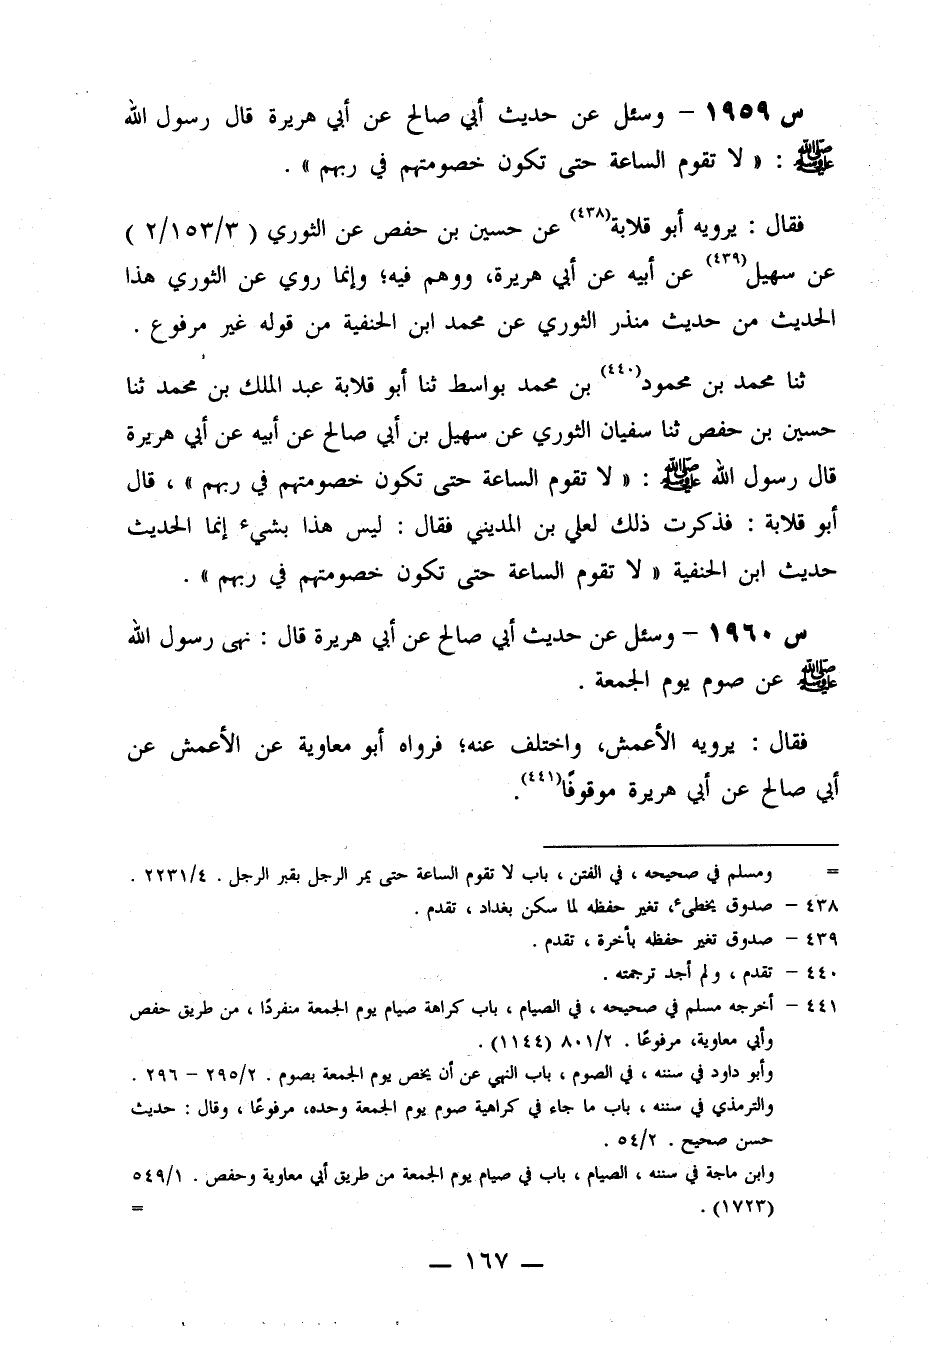 س ١٩٥٩ – وسئل عن حديث أبي صالح عن أبي هريرة قال رسول الله
ﷺ : « لا تقوم الساعة حتى تكون خصومتهم في ربهم » .
فقال : يرويه أبو قلابة(٤٣٨) عن حسين بن حفص عن الثوري ( ٢/١٥٣/٣ )
عن سهيل(٤٣٩) عن أبيه عن أبي هريرة، ووهم فيه؛ وإنما روي عن الثوري هذا
الحديث من حديث منذر الثوري عن محمد ابن الحنفية من قوله غير مرفوع .
ثنا محمد بن محمود(٤٤٠) بن محمد بواسط ثنا أبو قلابة عبد الملك بن محمد ثنا
حسين بن حفص ثنا سفيان الثوري عن سهيل بن أبي صالح عن أبيه عن أبي هريرة
قال رسول الله ﷺ : « لا تقوم الساعة حتى تكون خصومتهم في ربهم » ، قال
أبو قلابة : فذكرت ذلك لعلي بن المديني فقال : ليس هذا بشيء إنما الحديث
حديث ابن الحنفية « لا تقوم الساعة حتى تكون خصومتهم في ربهم » .
س ١٩٦٠ – وسئل عن حديث أبي صالح عن أبي هريرة قال : نهى رسول الله
ﷺ عن صوم يوم الجمعة .
فقال : يرويه الأعمش، واختلف عنه؛ فرواه أبو معاوية عن الأعمش عن
أبي صالح عن أبي هريرة موقوفًا(٤٤١).
= ومسلم في صحيحه ، في الفتن ، باب لا تقوم الساعة حتى يمر الرجل بقبر الرجل . ٢٢٣١/٤ .
٤٣٨ – صدوق يخطىء، تغير حفظه لما سكن بغداد ، تقدم .
٤٣٩ – صدوق تغير حفظه بأخرة ، تقدم .
٤٤٠ – تقدم ، ولم أجد ترجمته .
٤٤١ – أخرجه مسلم في صحيحه ، في الصيام ، باب كراهة صيام يوم الجمعة منفردًا ، من طريق حفص
وأبي معاوية، مرفوعًا . ٨٠١/٢ (١١٤٤) .
وأبو داود في سننه ، في الصوم ، باب النهي عن أن يخص يوم الجمعة بصوم . ٢٩٥/٢ – ٢٩٦ .
والترمذي في سننه ، باب ما جاء في كراهية صوم يوم الجمعة وحده، مرفوعًا ، وقال : حديث
حسن صحيح . ٥٤/٢ .
وابن ماجة في سننه ، الصيام ، باب في صيام يوم الجمعة من طريق أبي معاوية وحفص . ٥٤٩/١
(١٧٢٣) . =
— ١٦٧ —